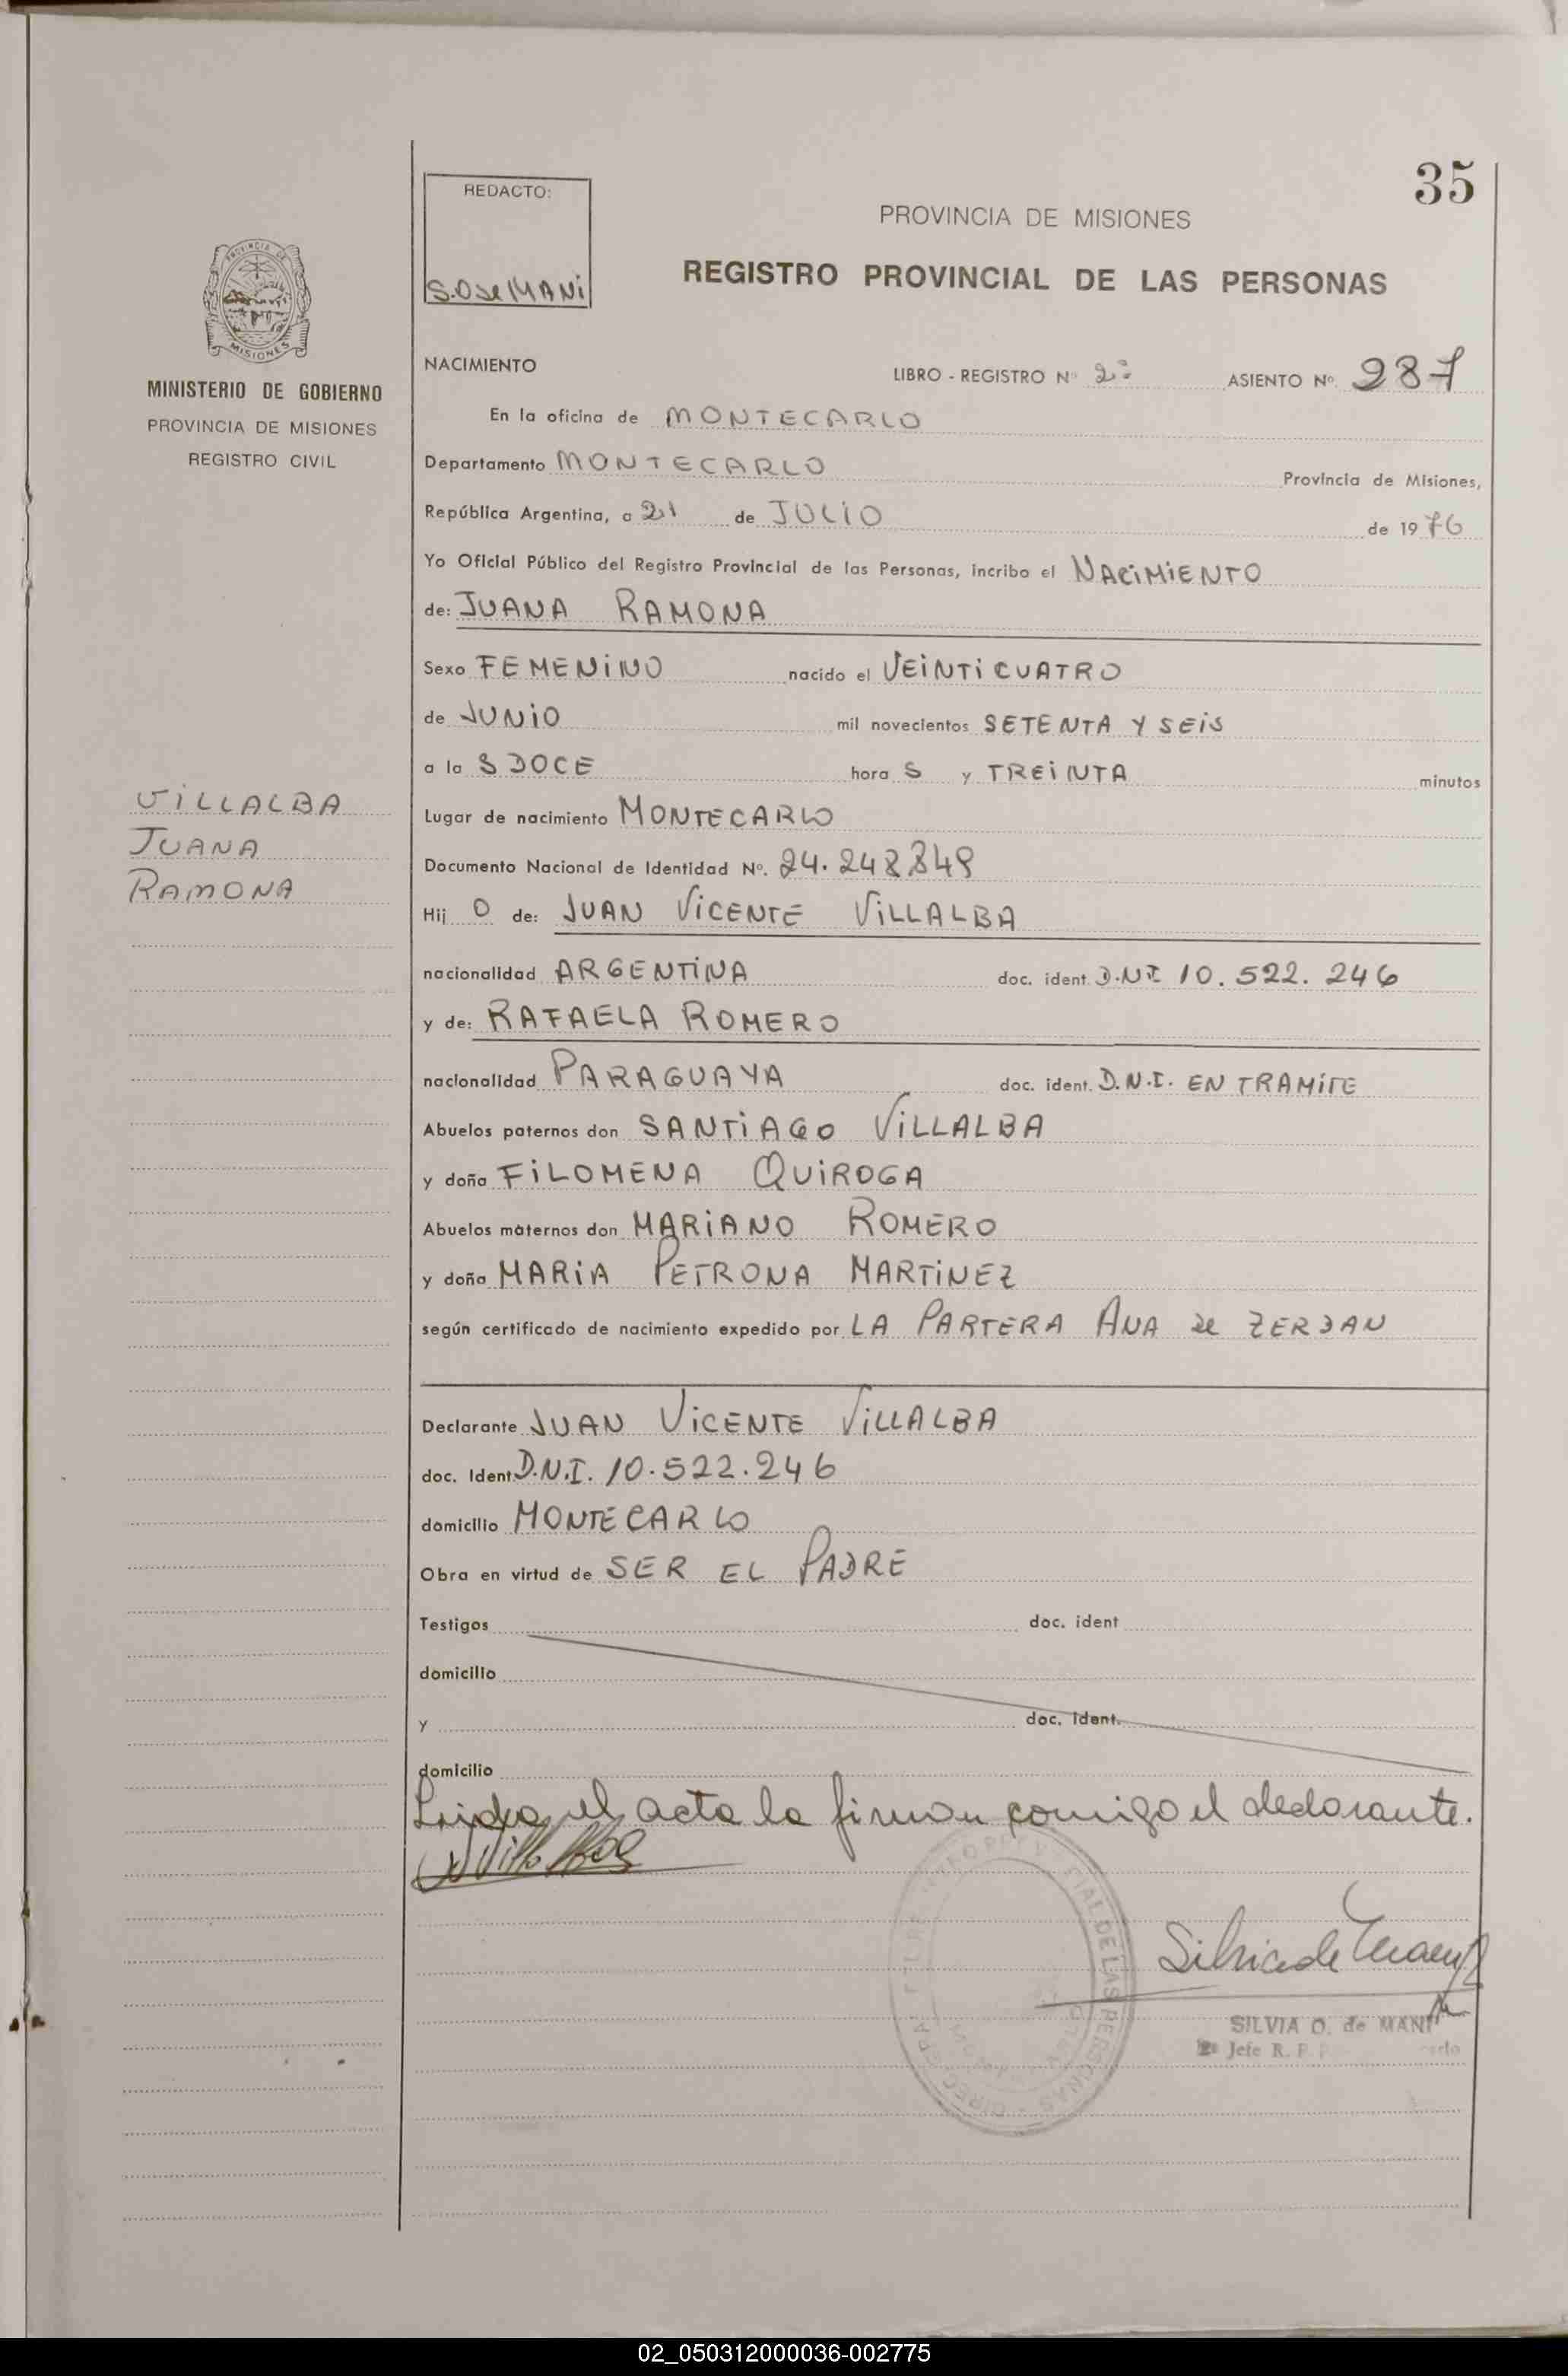 35
REDACTO:
S.O de MANi
PROVINCIA DE MISIONES
REGISTRO PROVINCIAL DE LAS PERSONAS
PROVINCIA DE
MISIONES
MINISTERIO DE GOBIERNO
PROVINCIA DE MISIONES
REGISTRO CIVIL
NACIMIENTO
LIBRO - REGISTRO Nº 2º ASIENTO Nº. 287
En la oficina de MONTECARLO
Departamento MONTECARLO Provincia de Misiones,
República Argentina, a 21 de JULIO de 1976
Yo Oficial Público del Registro Provincial de las Personas, incribo el NACIMIENTO
de: JUANA RAMONA
Sexo FEMENINO nacido el VEINTICUATRO
de JUNIO mil novecientos SETENTA Y SEIS
a la S DOCE hora S y TREINTA minutos
VILLALBA
JUANA
RAMONA
Lugar de nacimiento MONTECARLO
Documento Nacional de Identidad Nº. 24.248.849
Hij O de: JUAN VICENTE VILLALBA
nacionalidad ARGENTINA doc. ident. D.N.I 10.522.246
y de: RAFAELA ROMERO
nacionalidad PARAGUAYA doc. ident. D.N.I. EN TRAMITE
Abuelos paternos don SANTIAGO VILLALBA
y doña FILOMENA QUIROGA
Abuelos maternos don MARIANO ROMERO
y doña MARIA PETRONA MARTINEZ
según certificado de nacimiento expedido por LA PARTERA ANA de ZERDAN
Declarante JUAN VICENTE VILLALBA
doc. Ident. D.N.I. 10.522.246
domicilio MONTECARLO
Obra en virtud de SER EL PADRE
Testigos doc. ident
domicilio
y doc. ident.
domicilio
Leida el acta la firman comigo el declarante.
DE LAS PERSONAS
SILVIA O. de MANI
Jefe R. P.
02_050312000036-002775